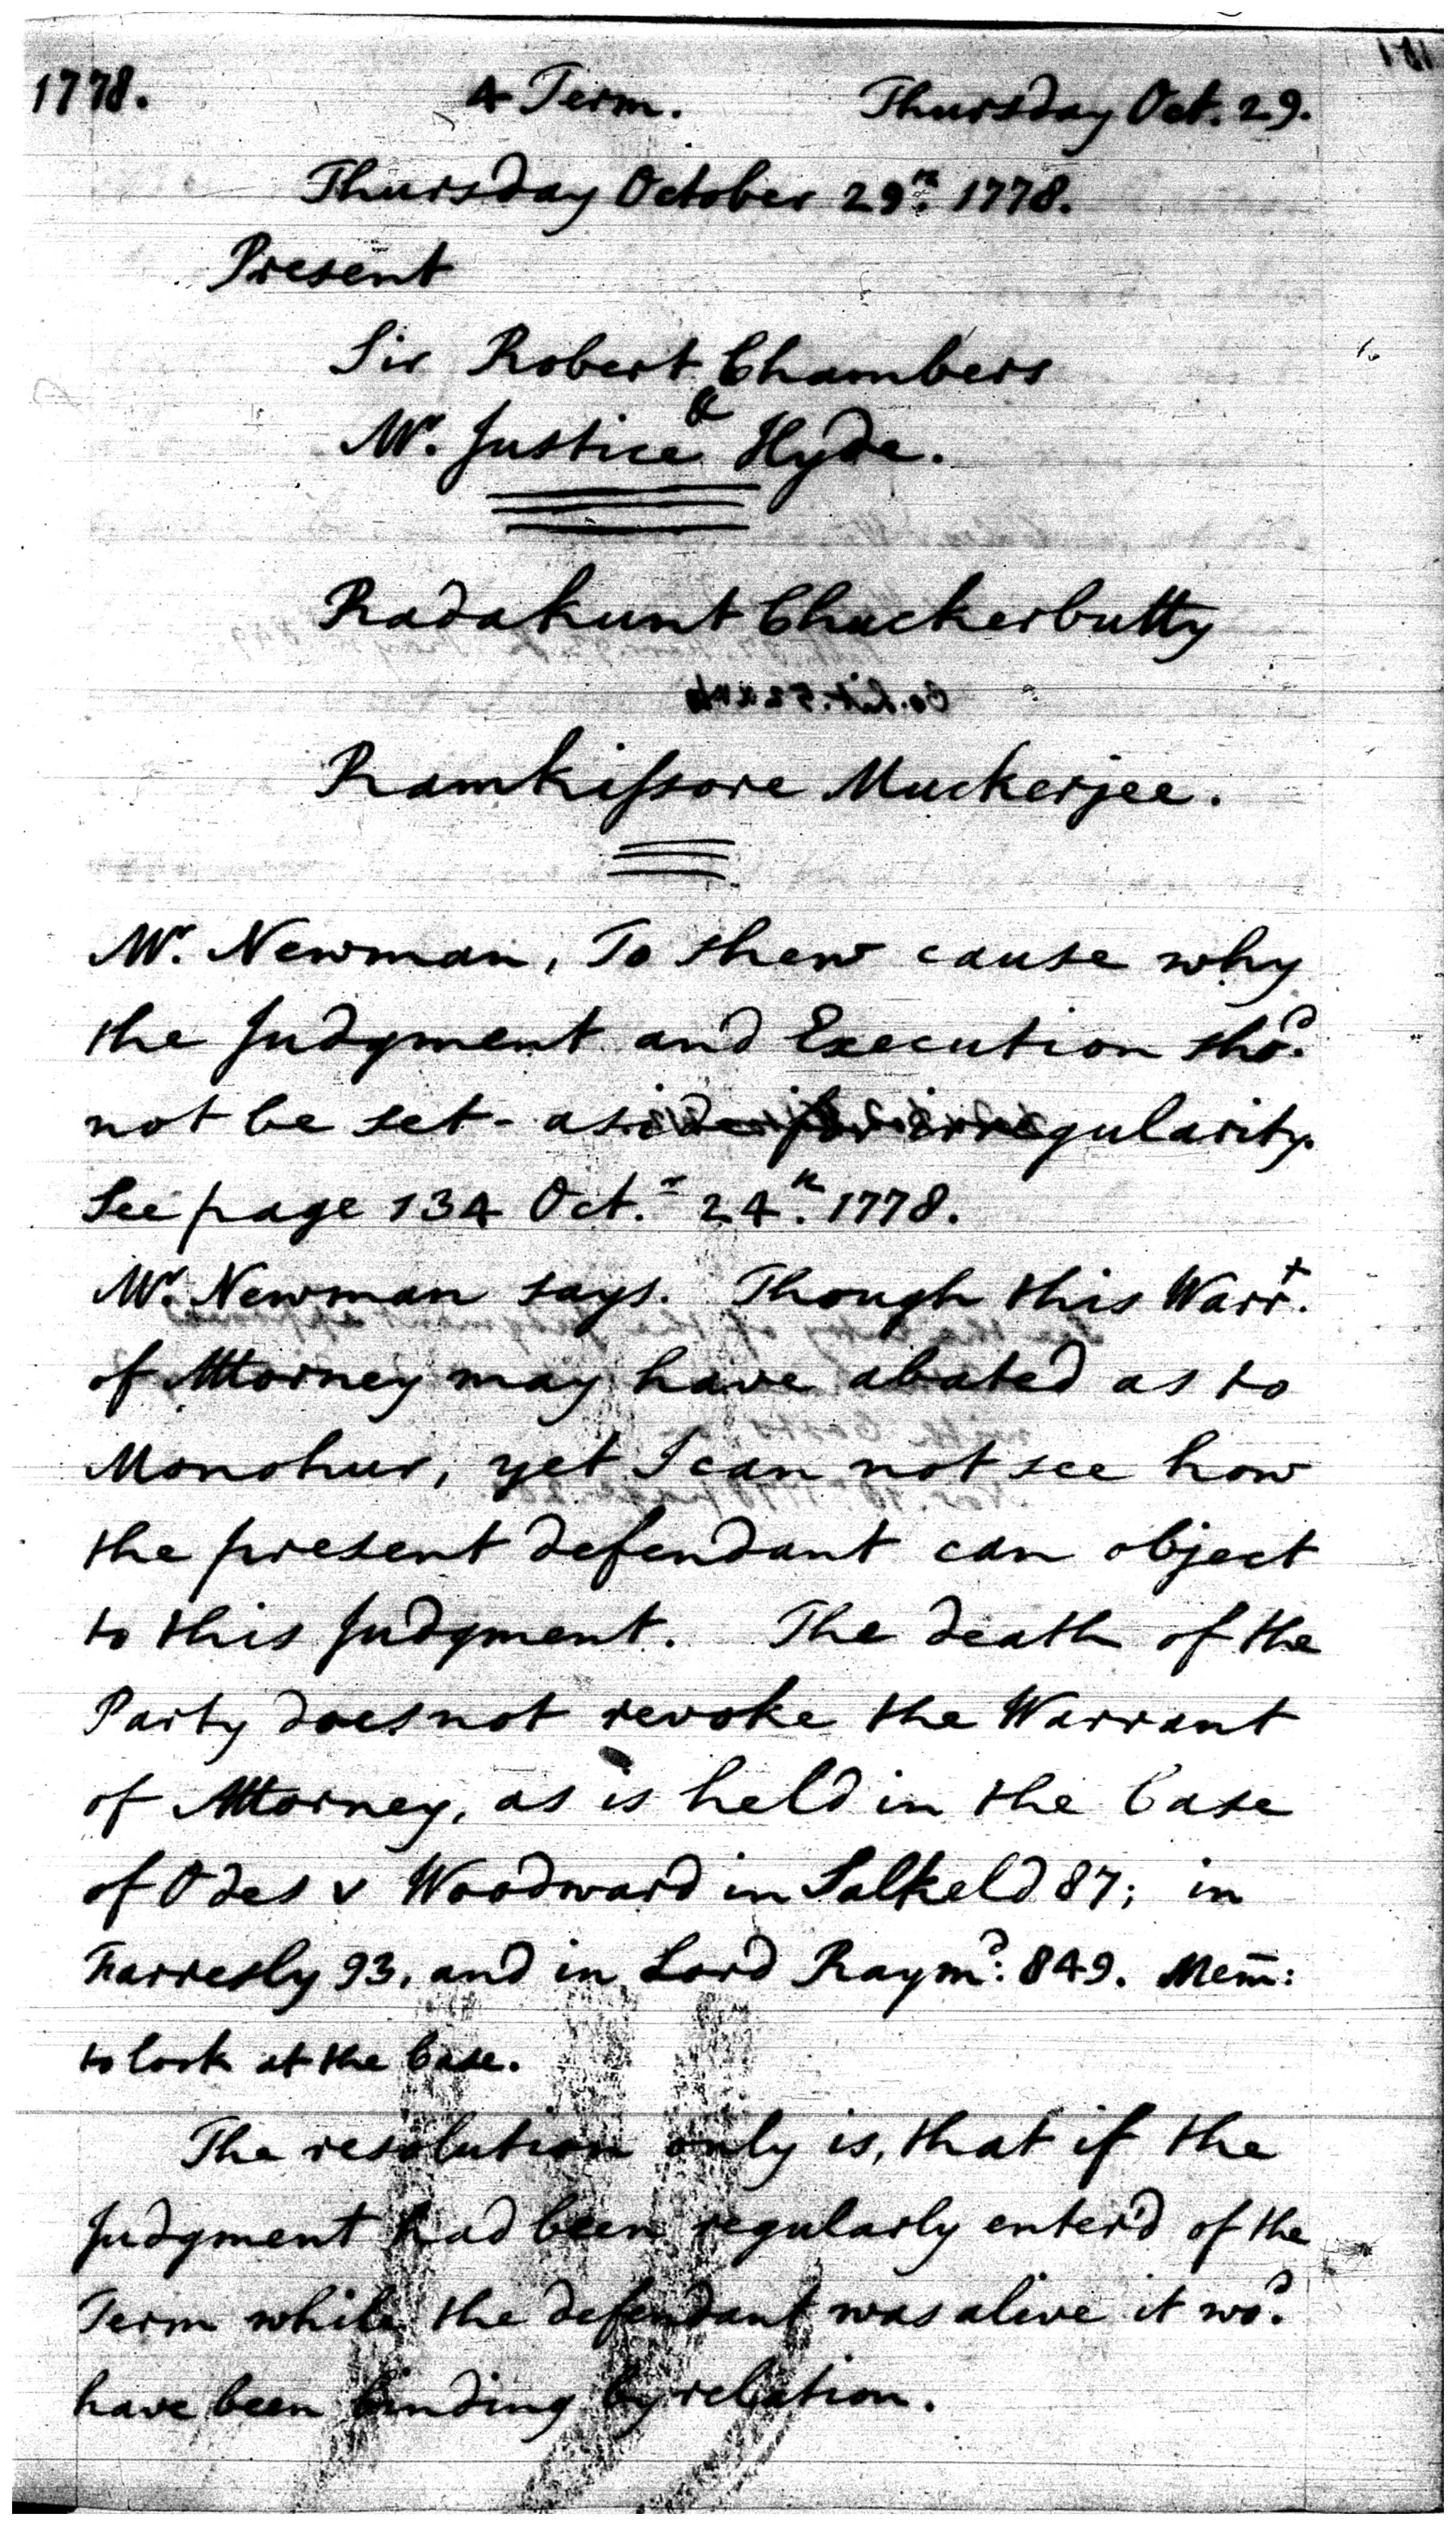 1778. 4 Term. Thursday Oct. 29.
Thursday October 29th. 1778.
Present
Sir Robert Chambers
&
Mr. Justice Hyde.
Radakunt Chuckerbutty
Ramkissore Muckerjee.
Mr. Newman, To shew cause why
the Judgment and Execution shod.
not be set-aside for irregularity.
See page 134 Octr. 24th. 1778.
Mr. Newman says. Though this Warrt.
of Attorney may have abated as to
Monohur, yet I can not see how
the present defendant can object
to this Judgment. The death of the
Party does not revoke the Warrant
of Attorney, as is held in the Case
of Odes v Woodward in Salkeld 87; in
Farresly 93. and in Lord Raymd. 849. Mem:
to look at the Case.
The resolution only is, that if the
Judgment had been regularly enter'd of the
Term while the defendant was alive it wod.
have been binding by relation.